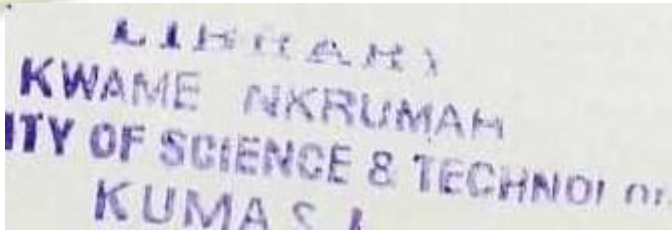 LIBRARY
KWAME NKRUMAH
ITY OF SCIENCE & TECHNOLO
KUMASI